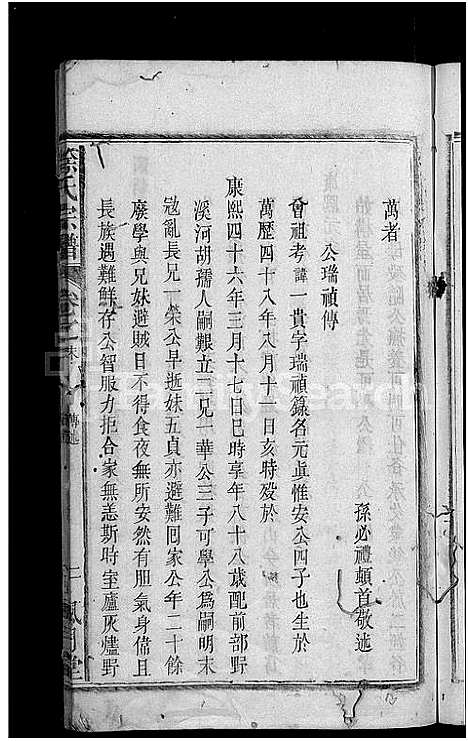 萬者
公瑞禎傳
孫必禮頓首敬述
曾祖考諱一貴字瑞禎錄名元眞惟安公四子也生於
萬歷四十八年八月十一日亥時歿於
康熙四十六年三月十七日巳時享年八十八歲配前部野
溪河胡孺人嗣艱立二兄一華公三子可學公爲嗣明末
寇亂長兄一榮公早逝妹五貞亦避難回家公年二十餘
廢學與兄妹避賊日不得食夜無所安然有胆氣身偹且
長族遇難鮮存公智服力拒合家無恙斯時室廬灰燼野
氏宗譜
卷之
末
傳述
二
鳳
堂